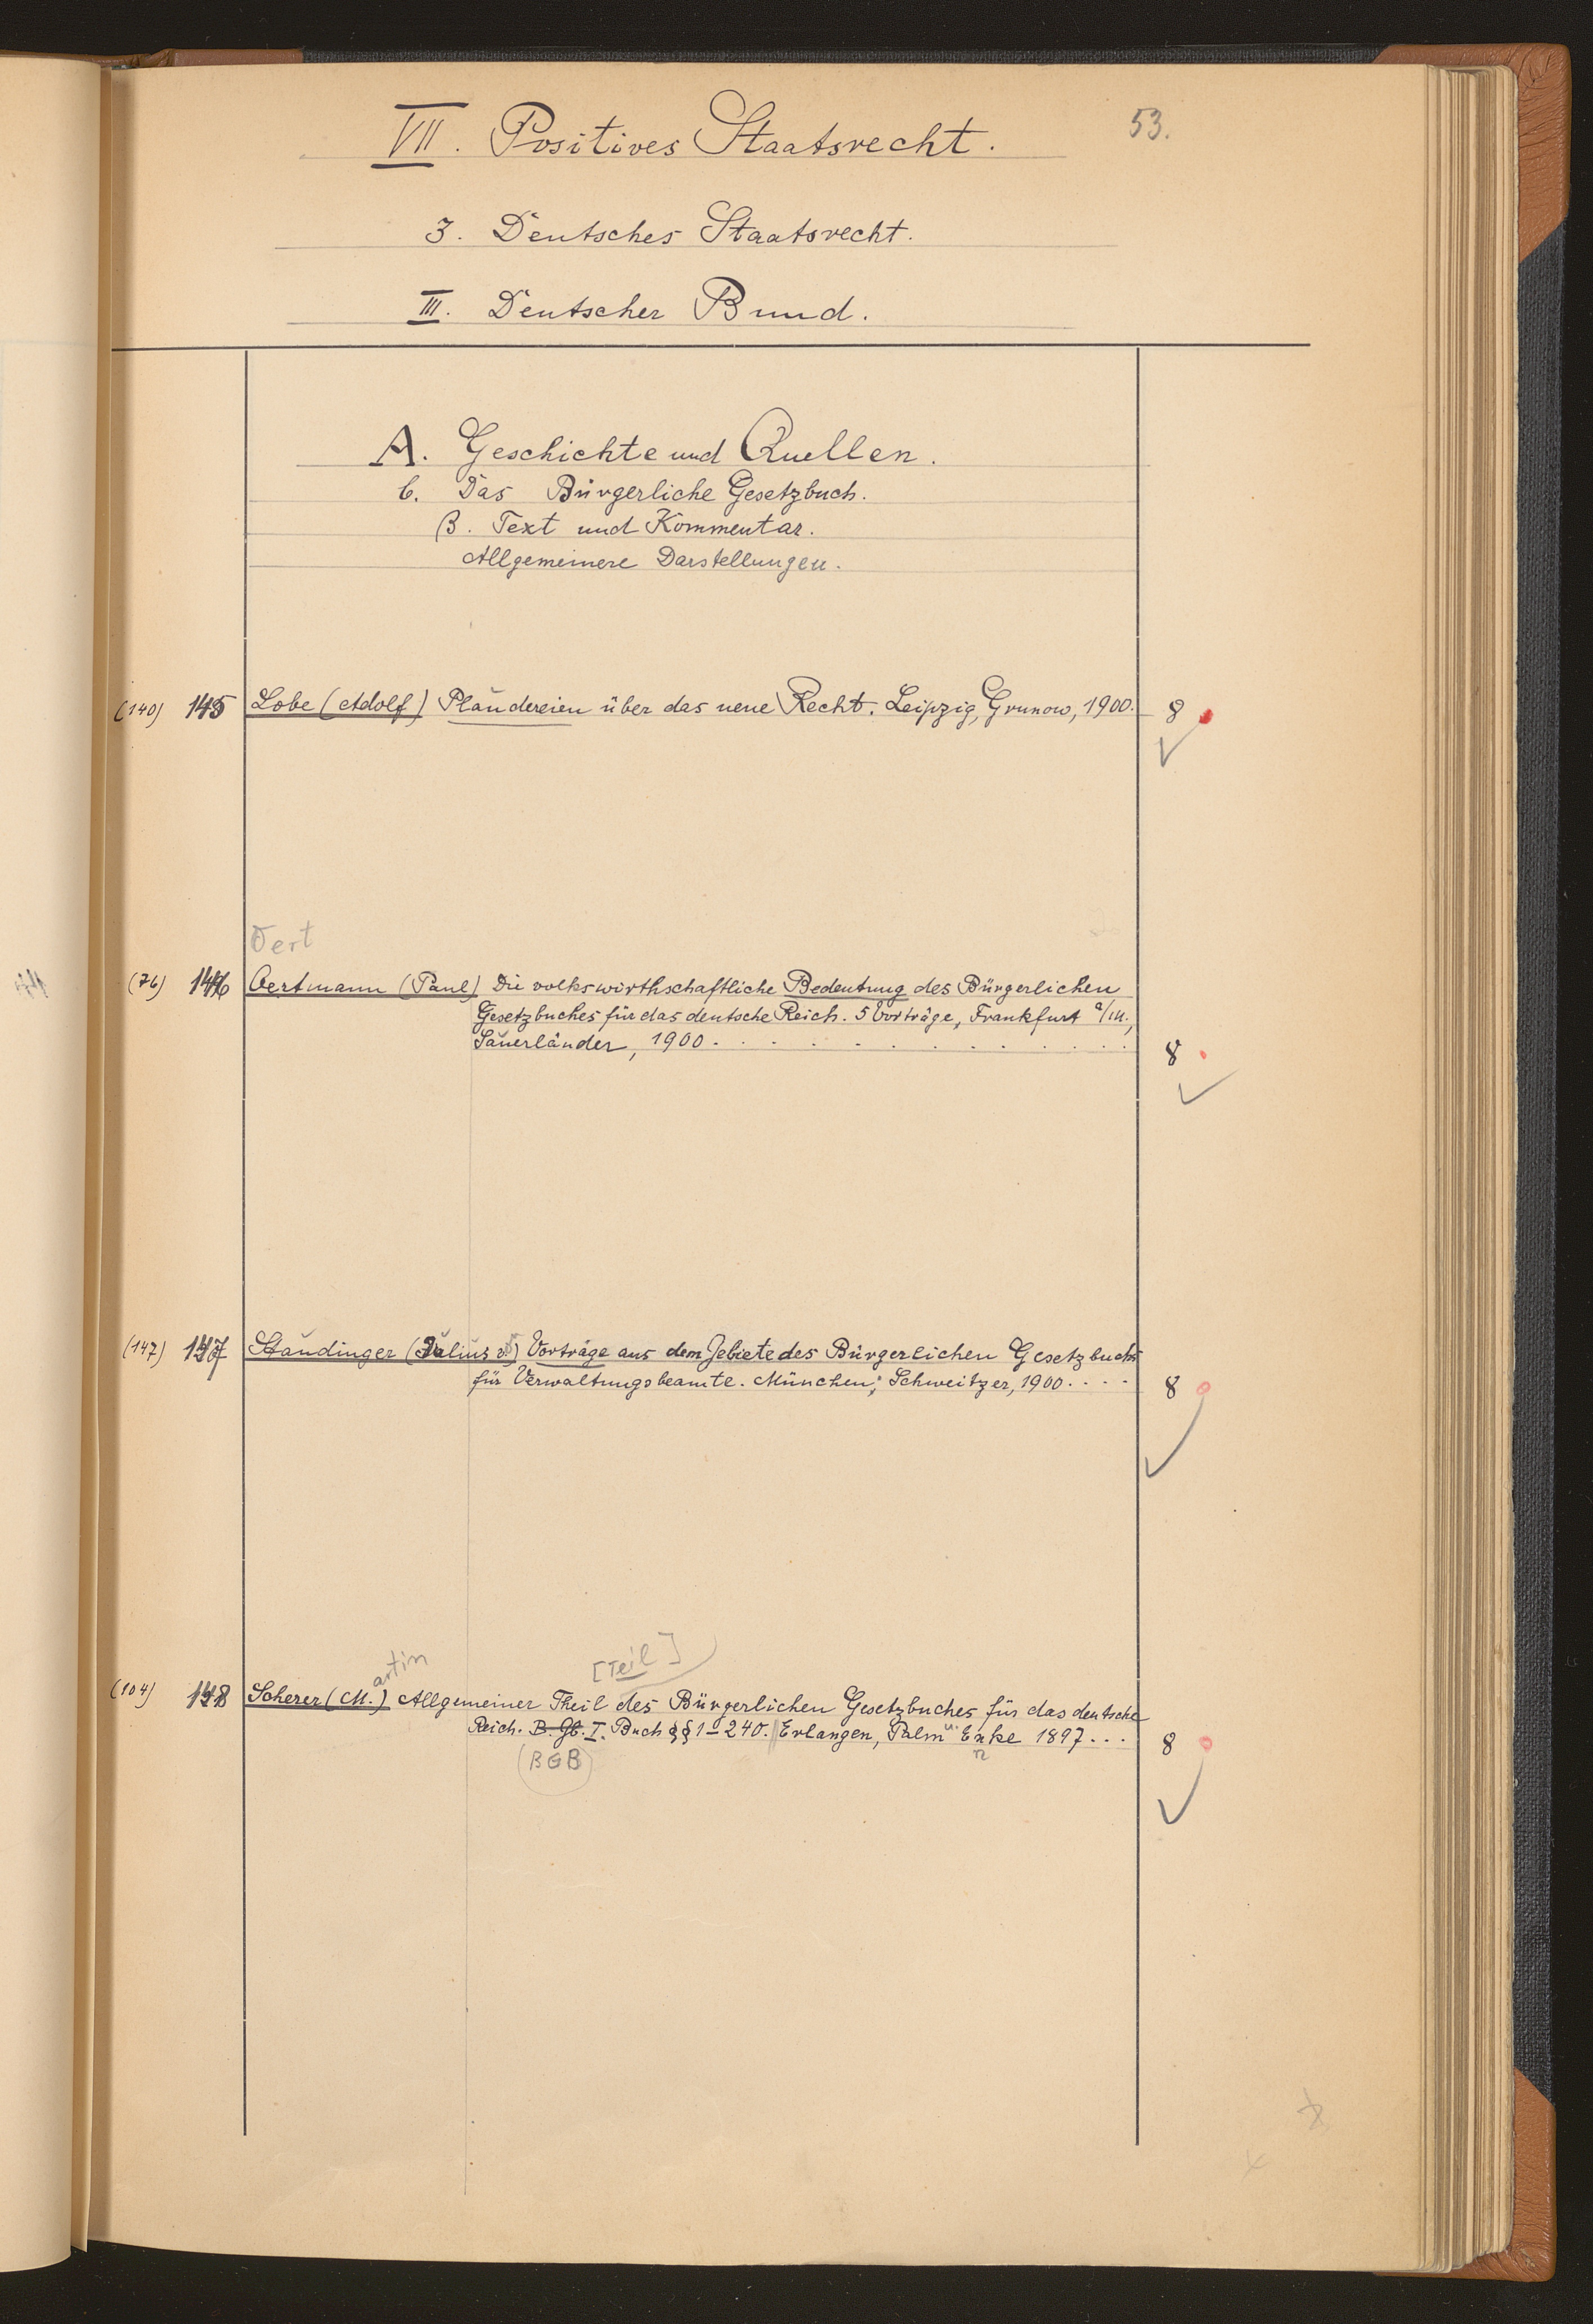 53.
VII. Positives Staatsrecht.
3. Deutsches Staatsrecht.
III. Deutscher Bund.
A. Geschichte und Quellen.
b. Das Bürgerliche Gesetzbuch.
β. Text und Kommentar.
Allgemeinere Darstellungen.
(140) 145 Lobe (Adolf) Plaudereien über das neue Recht. Leipzig, Grunow, 1900. 8
Oert
(76) 146 Oertmann (Paul) Die volkswirthschaftliche Bedeutung des Bürgerlichen
Gesetzbuches für das deutsche Reich. 5 Vorträge, Frankfurt a/M.,
Sauerländer, 1900 . . . . . . . . . . . 8
(147) 147 Staudinger (Julius v.) Vorträge aus dem Gebiete des Bürgerlichen Gesetzbuchs
für Verwaltungsbeamte. München, Schweitzer, 1900 . . . . 8
artin [Teil]
(104) 148 Scherer (M.) Allgemeiner Theil des Bürgerlichen Gesetzbuches für das deutsche
Reich. B. Gb. I. Buch §§ 1–240. Erlangen, Palm u. Enke 1897 . . . 8
(BGB) n